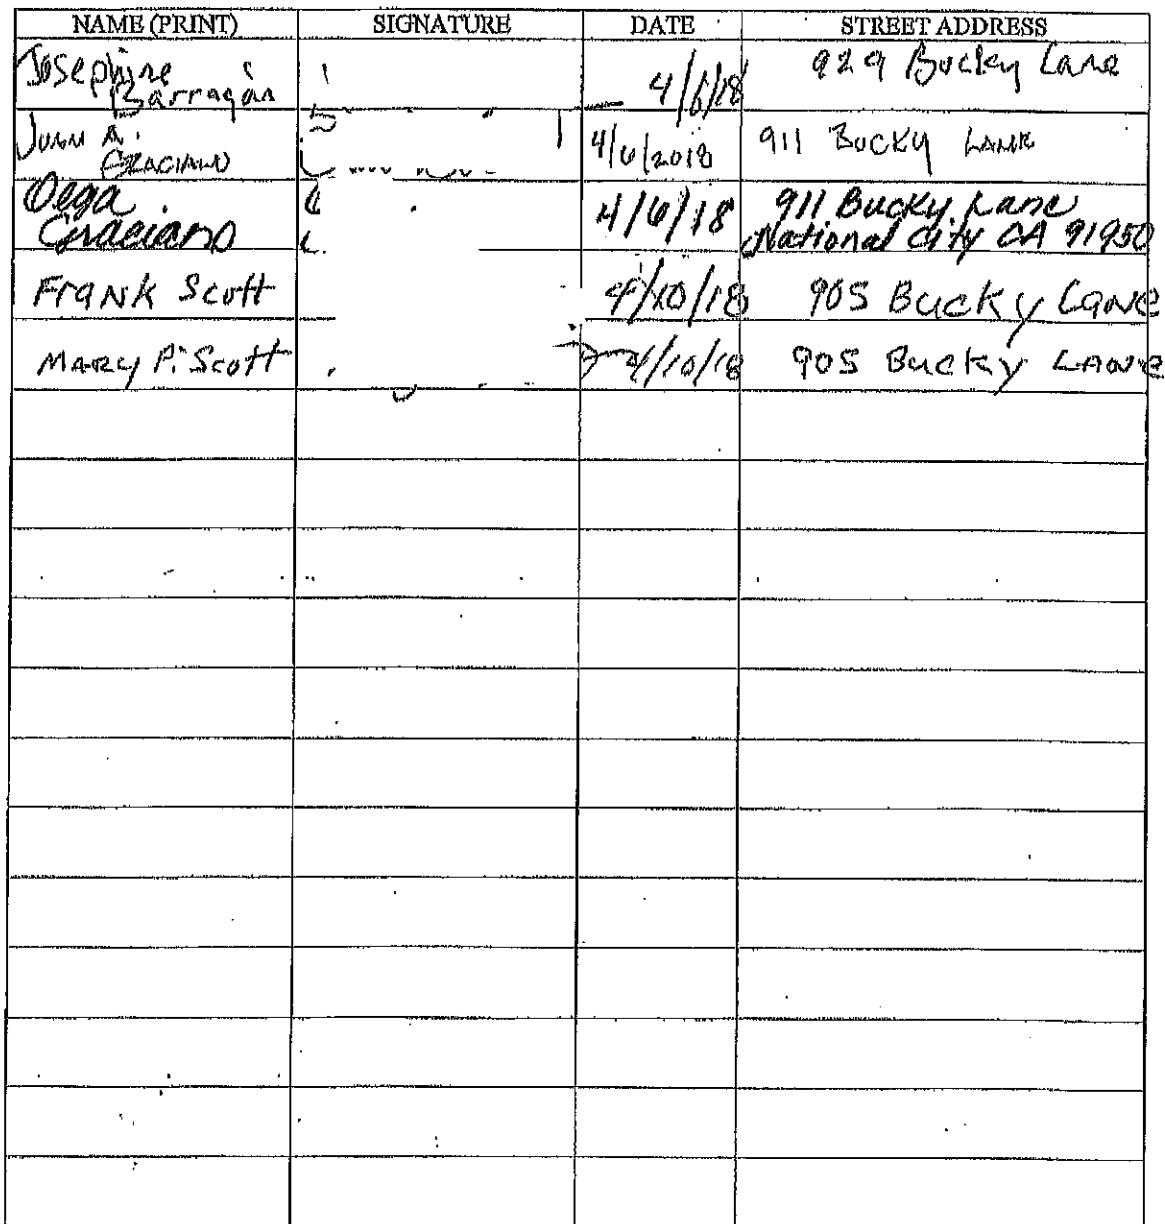 NAME (PRINT) SIGNATURE DATE STREET ADDRESS
Josephine Barragan 4/6/18 929 Bucky Lane
Juan A. GRACIANO 4/6/2018 911 Bucky LANE
Olga Graciano 4/6/18 911 Bucky Lane
National City CA 91950
Frank Scott 4/10/18 905 Bucky Lane
MARY P. Scott 4/10/18 905 Bucky LANE